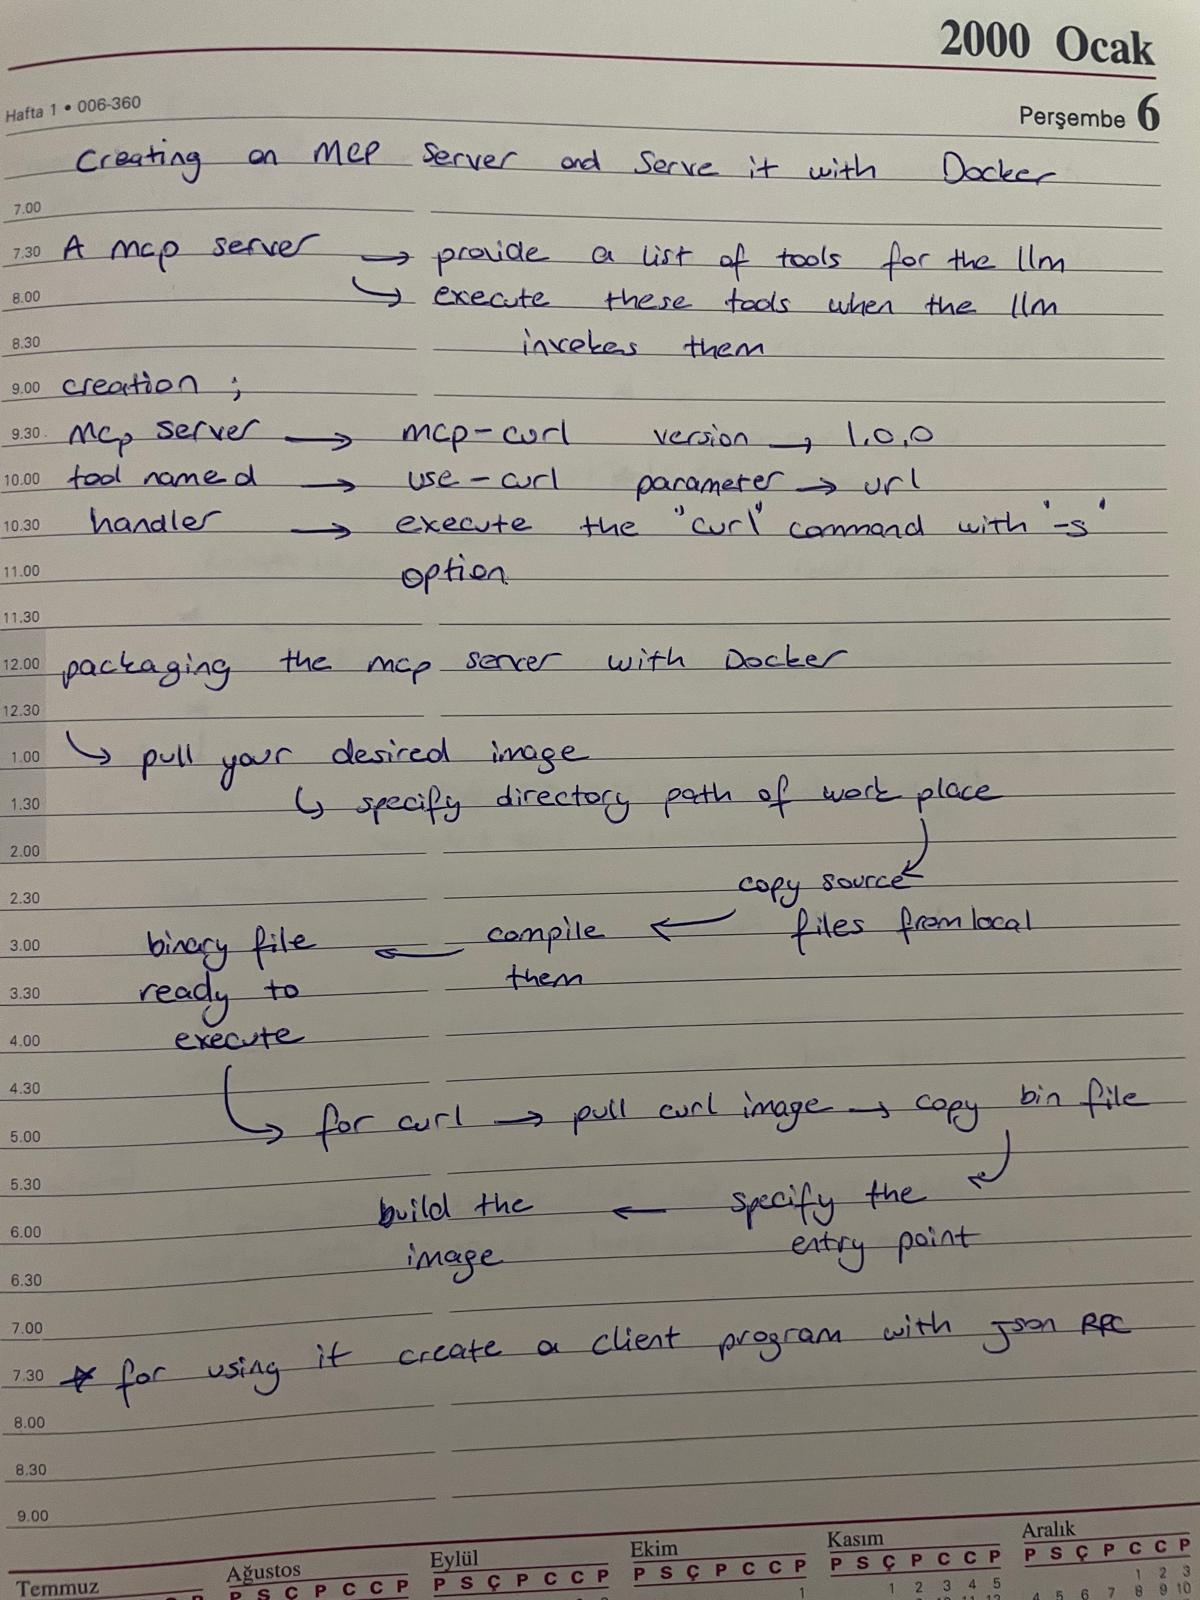 2000 Ocak
Hafta 1 • 006-360
Perşembe 6
Creating an MCP Server and Serve it with Docker
7.00
7.30 A mcp server → provide a list of tools for the llm
8.00 ↳ execute these tools when the llm
8.30 invokes them
9.00 creation ;
9.30 Mcp server → mcp-curl version → 1.0.0
10.00 tool named → use-curl parameter → url
10.30 handler → execute the "curl" command with '-s'
11.00 option
11.30
12.00 packaging the mcp server with Docker
12.30
1.00 ↳ pull your desired image
1.30 ↳ specify directory path of work place
2.00
2.30 copy source
3.00 binary file ← compile ← files from local
3.30 ready to them
4.00 execute
4.30
5.00 ↳ for curl → pull curl image → copy bin file
5.30
6.00 build the ← specify the
6.30 image entry point
7.00
7.30 * for using it create a client program with json RPC
8.00
8.30
9.00
Temmuz Ağustos Eylül Ekim Kasım Aralık
P S Ç P C C P P S Ç P C C P P S Ç P C C P P S Ç P C C P P S Ç P C C P
1 1 2 3 4 5 1 2 3
4 5 6 7 8 9 10